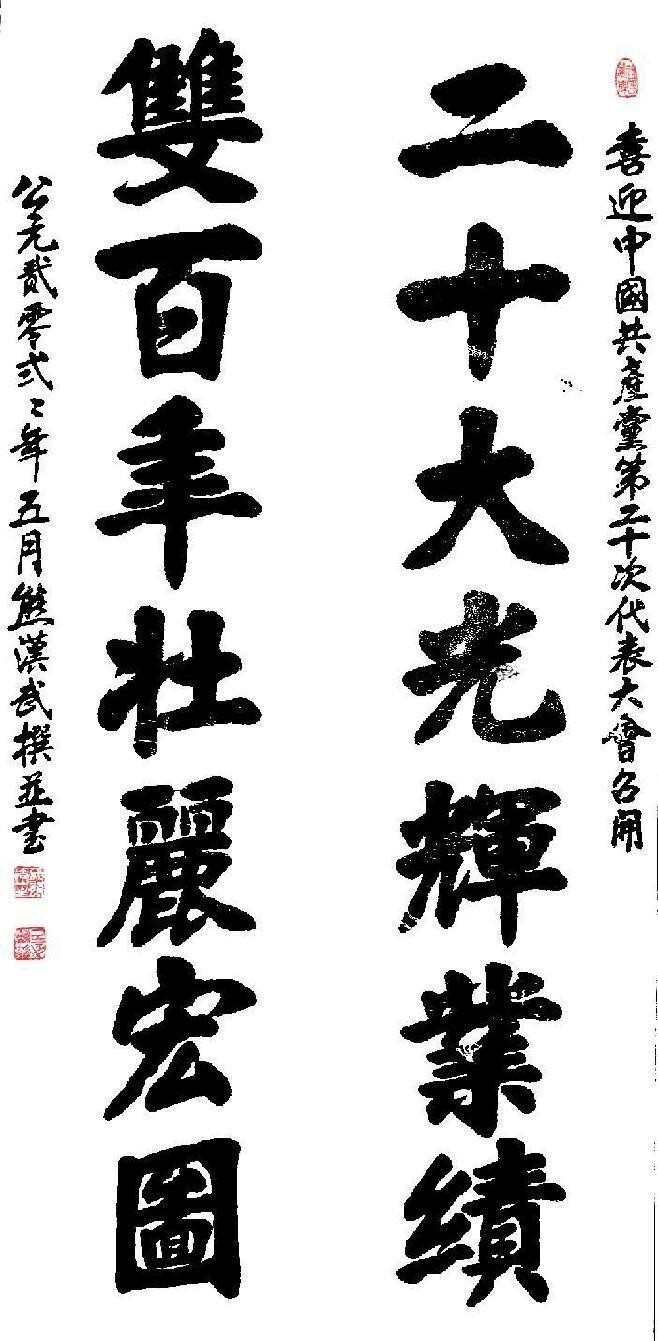 喜迎中國共產黨第二十次代表大會召開
二十大光輝業績
雙百年壯麗宏圖
公元貳零弍二年五月熊漢武撰並書